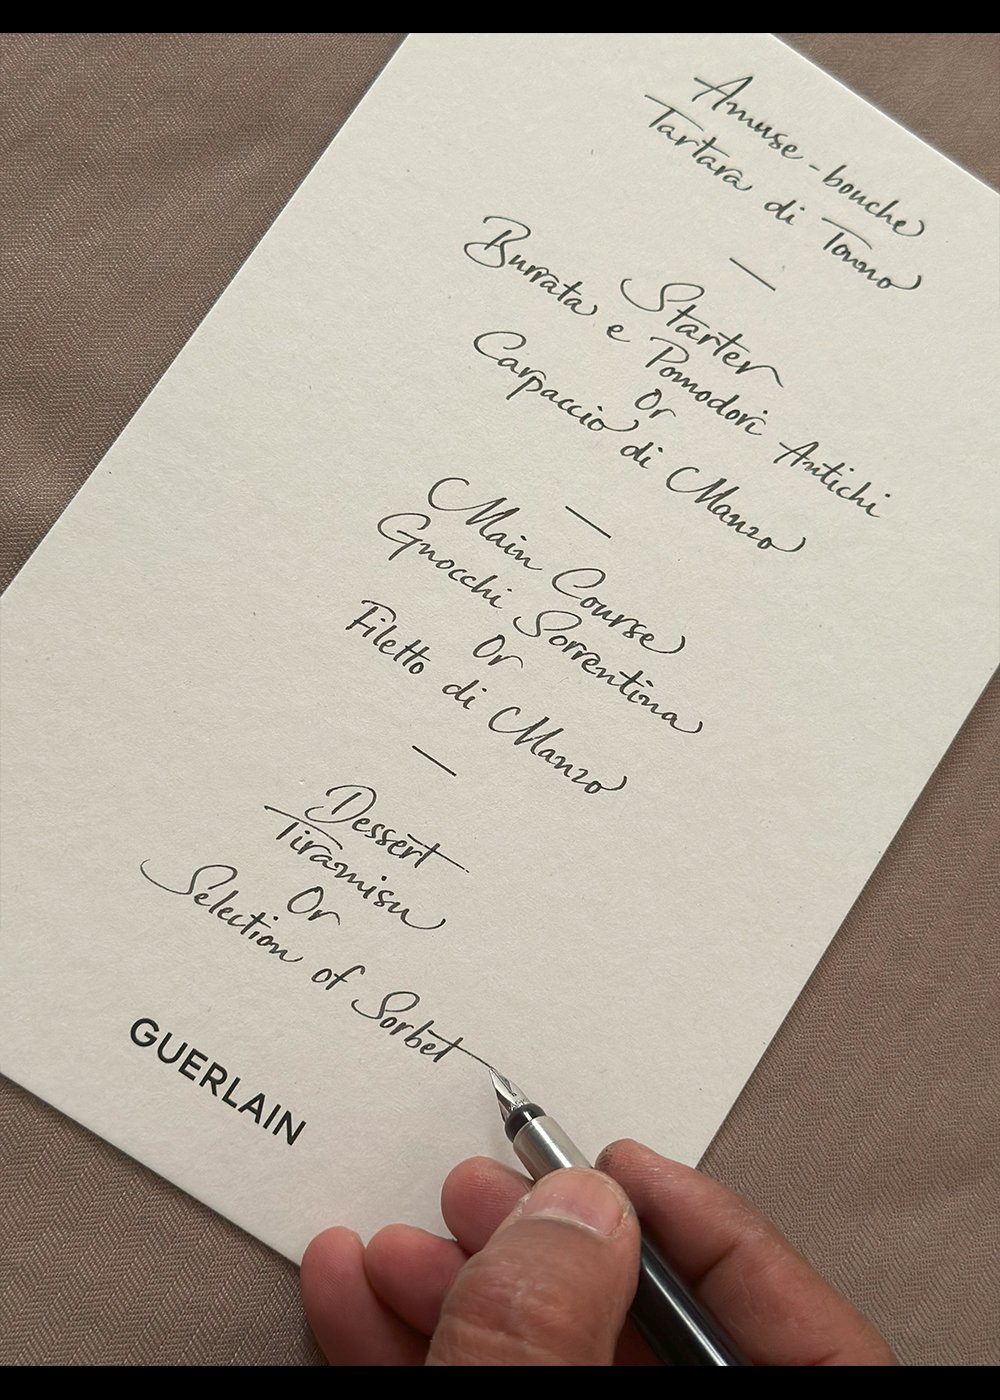 Amuse-bouche
Tartara di Tonno
—
Starter
Burrata e Pomodori Antichi
Or
Carpaccio di Manzo
—
Main Course
Gnocchi Sorrentina
Or
Filetto di Manzo
—
Dessert
Tiramisu
Or
Selection of Sorbet
GUERLAIN